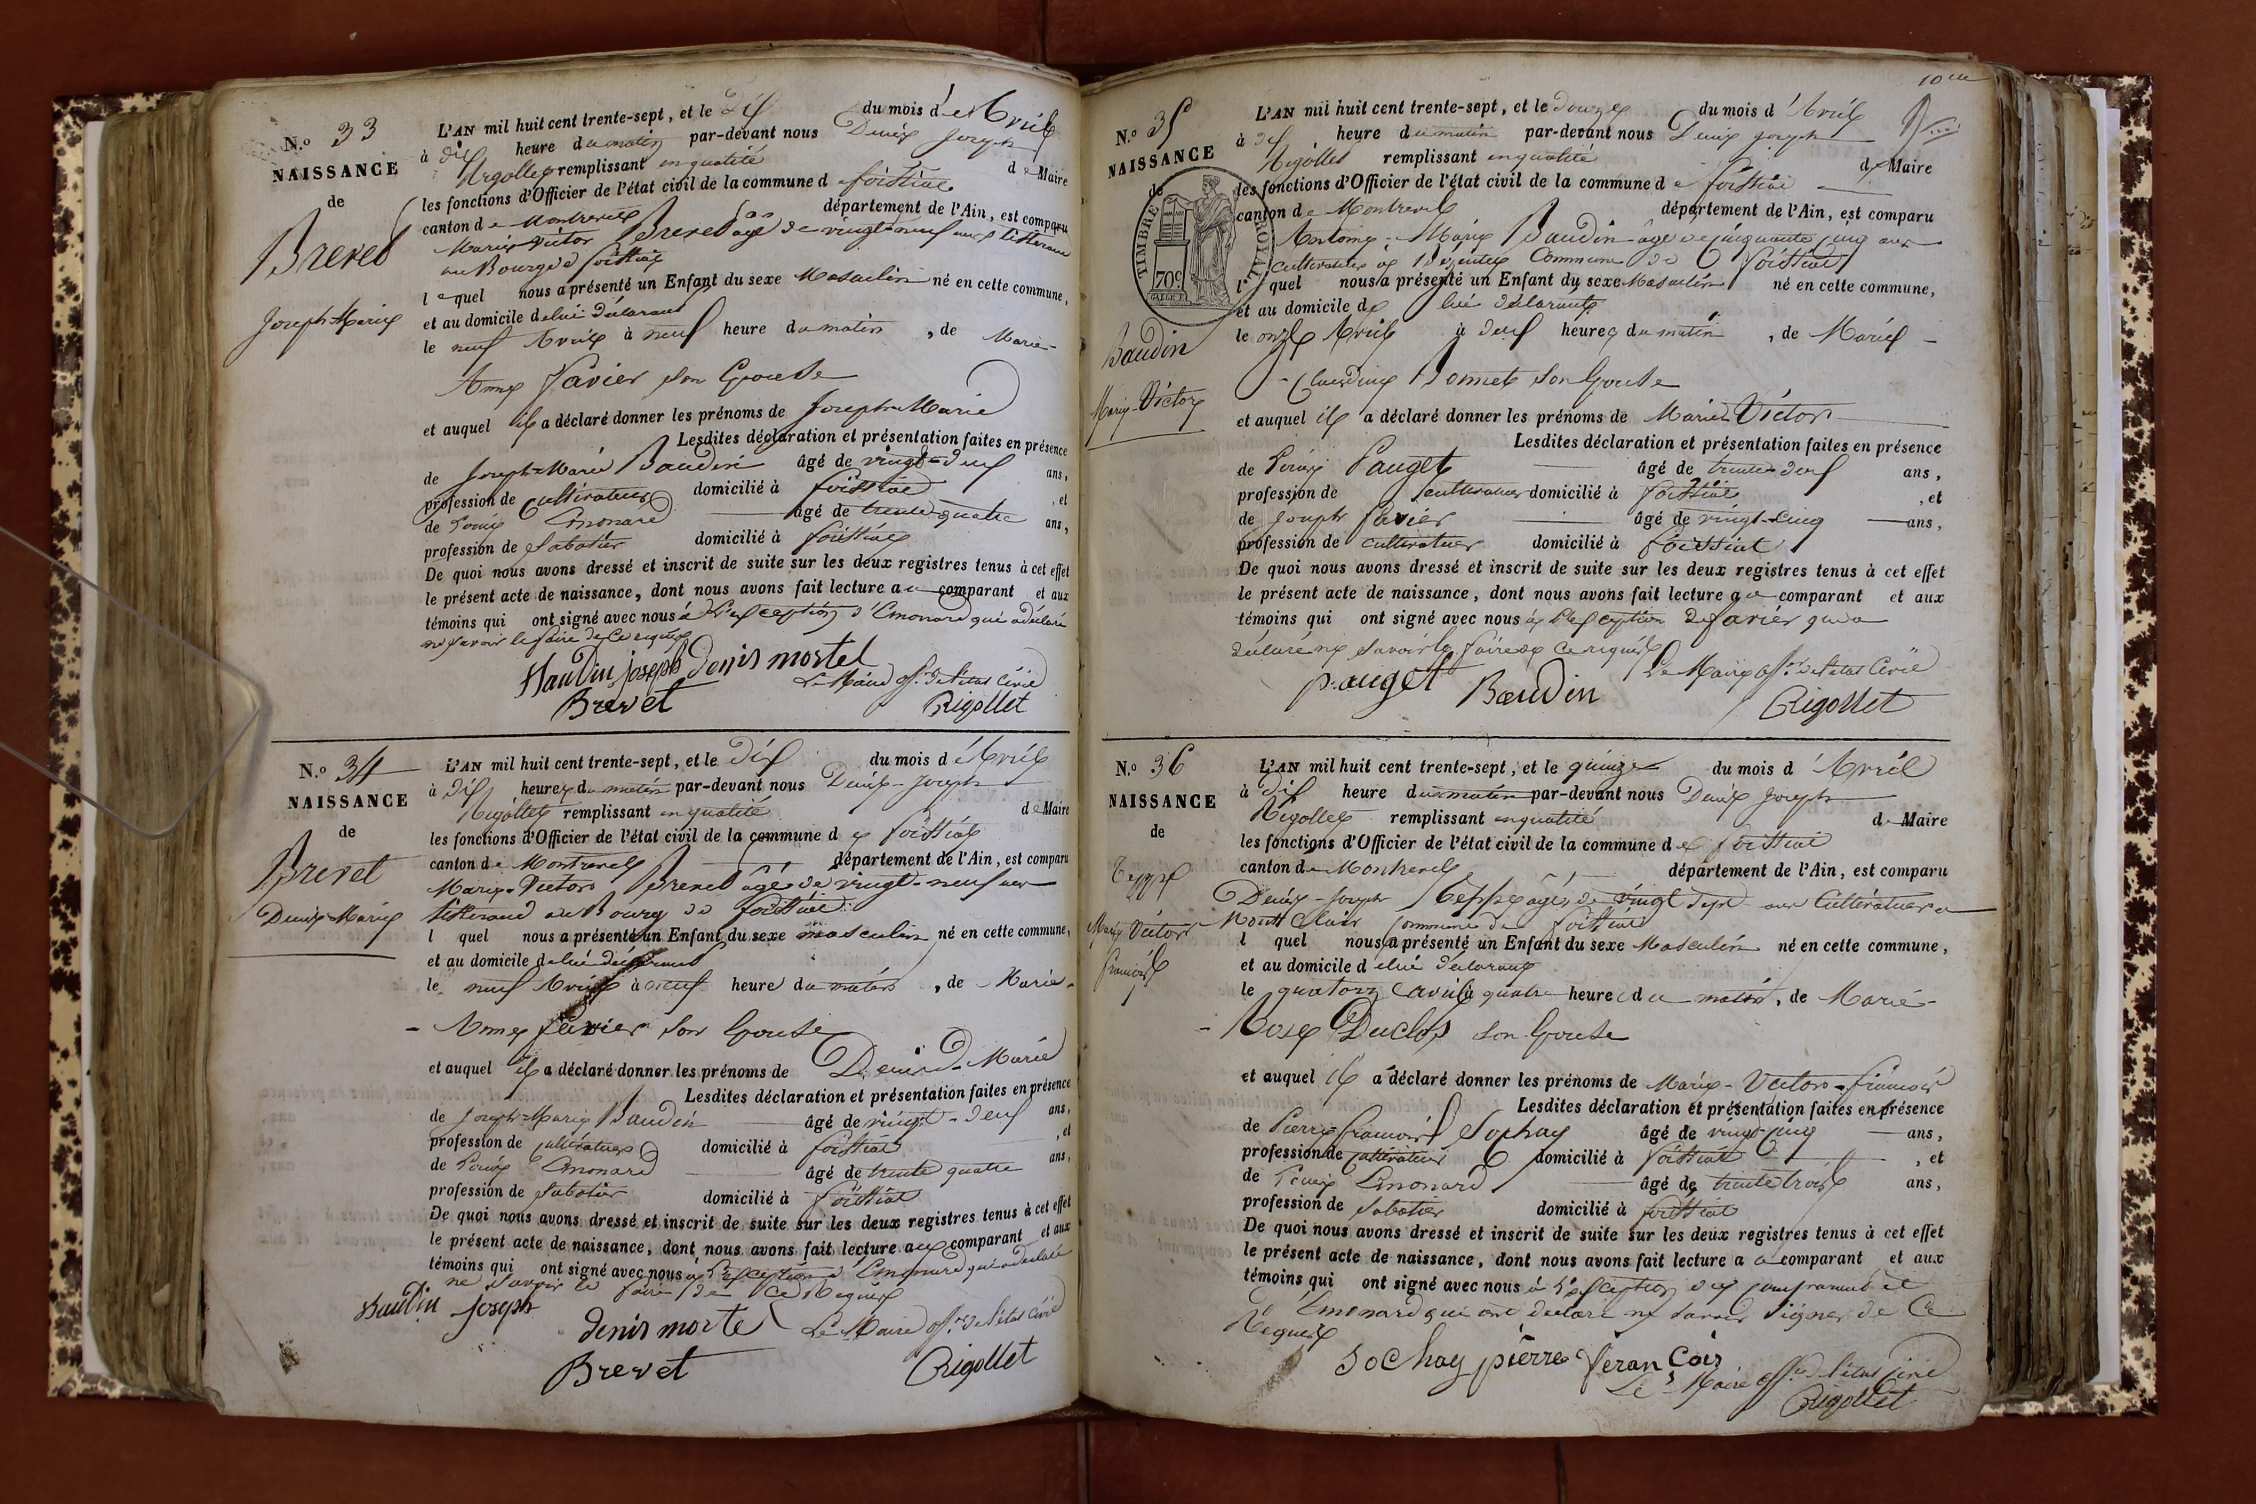 N.o 33
NAISSANCE
de
Brevet
Joseph-Marie
L'AN mil huit cent trente-sept, et le dix du mois d'Avril
à dix heure du matin par-devant nous Denis Joseph
Rigollet remplissant en qualité de Maire
les fonctions d'Officier de l'état civil de la commune de foissiat
canton de Montrevel département de l'Ain, est comparu
Marie Victor Brevet âgé de vingt-neuf ans
au Bourg de foissiat
lequel nous a présenté un Enfant du sexe Masculin né en cette commune,
et au domicile de lui déclarant
le neuf Avril à neuf heure du matin, de Marie-
Anne favier son Epouse
et auquel il a déclaré donner les prénoms de Joseph-Marie
Lesdites déclaration et présentation faites en présence
de Joseph-Marie Baudin âgé de vingt-deux ans,
profession de Cultivateur domicilié à foissiat, et
de Emonard âgé de trente-quatre ans,
profession de Sabotier domicilié à foissiat
De quoi nous avons dressé et inscrit de suite sur les deux registres tenus à cet effet
le présent acte de naissance, dont nous avons fait lecture au comparant et aux
témoins qui ont signé avec nous à l'exception d'Emonard qui a déclaré
ne savoir le faire de ce requis
Baudin joseph denis mortel
Le Maire off. de l'état Civil
Brevet Rigollet
N.o 34
NAISSANCE
de
Brevet
Denis-Marie
L'AN mil huit cent trente-sept, et le dix du mois d'Avril
à dix heures du matin par-devant nous Denis-Joseph
Rigollet remplissant en qualité de Maire
les fonctions d'Officier de l'état civil de la commune de foissiat
canton de Montrevel département de l'Ain, est comparu
Marie-Victor Brevet âgé de vingt-neuf ans
au Bourg de foissiat
l quel nous a présenté un Enfant du sexe masculin né en cette commune,
et au domicile de lui déclarant
le neuf Avril à neuf heure du matin, de Marie-
-Anne favier son Epouse
et auquel il a déclaré donner les prénoms de Denis-Marie
Lesdites déclaration et présentation faites en présence
de Joseph-Marie Baudin âgé de vingt-deux ans,
profession de cultivateur domicilié à foissiat, et
de Emonard âgé de trente quatre ans,
profession de Sabotier domicilié à foissiat
De quoi nous avons dressé et inscrit de suite sur les deux registres tenus à cet effet
le présent acte de naissance, dont nous avons fait lecture au comparant et aux
témoins qui ont signé avec nous à l'exception d'Emonard qui a déclaré
ne savoir le faire de ce Requis
Baudin joseph
denis mortel Le Maire off. de l'état Civil
Brevet Rigollet
10
N.o 35
NAISSANCE
de
TIMBRE ROYAL
70c
Baudin
Marie-Victor
L'AN mil huit cent trente-sept, et le douze du mois d'Avril
à dix heure du matin par-devant nous Denis Joseph
Rigollet remplissant en qualité de Maire
les fonctions d'Officier de l'état civil de la commune de foissiat
canton de Montrevel département de l'Ain, est comparu
Antoine-Marie Baudin âgé de cinquante cinq ans
cultivateur Commune de foissiat
le quel nous a présenté un Enfant du sexe Masculin né en cette commune,
et au domicile de lui déclarant
le onze Avril à deux heures du matin, de Marie-
-Claudine Bonnet son Epouse
et auquel il a déclaré donner les prénoms de Marie-Victor
Lesdites déclaration et présentation faites en présence
de Pauget âgé de trente-deux ans,
profession de cultivateur domicilié à foissiat, et
de Joseph favier âgé de vingt-cinq ans,
profession de cultivateur domicilié à foissiat
De quoi nous avons dressé et inscrit de suite sur les deux registres tenus à cet effet
le présent acte de naissance, dont nous avons fait lecture au comparant et aux
témoins qui ont signé avec nous à l'exception de favier qui a
déclaré ne savoir le faire de ce requis
Le Maire off. de l'état Civil
p. auget Baudin Rigollet
N.o 36
NAISSANCE
de
Teppe
Marie Victor
francois
L'AN mil huit cent trente-sept, et le quinze du mois d'Avril
à dix heure du matin par-devant nous Denis Joseph
Rigollet remplissant en qualité de Maire
les fonctions d'Officier de l'état civil de la commune de foissiat
canton de Montrevel département de l'Ain, est comparu
Denis-Joseph Teppe âgé de vingt sept ans Cultivateur a
Mont Clair Commune de foissiat
l quel nous a présenté un Enfant du sexe Masculin né en cette commune,
et au domicile de lui déclarant
le quatorze avril à quatre heure du matin, de Marie-
-Rose Duclos son Epouse
et auquel il a déclaré donner les prénoms de Marie-Victor-francois
Lesdites déclaration et présentation faites en présence
de Pierre-francois Sochay âgé de vingt-cinq ans,
profession de cultivateur domicilié à foissiat, et
de Emonard âgé de trente trois ans,
profession de Sabotier domicilié à foissiat
De quoi nous avons dressé et inscrit de suite sur les deux registres tenus à cet effet
le présent acte de naissance, dont nous avons fait lecture au comparant et aux
témoins qui ont signé avec nous à l'exception du comparant et
Emonard qui ont déclaré ne savoir signer de Ce
Requis
Sochay pierre feran Cois
Le Maire off. de l'état Civil
Rigollet